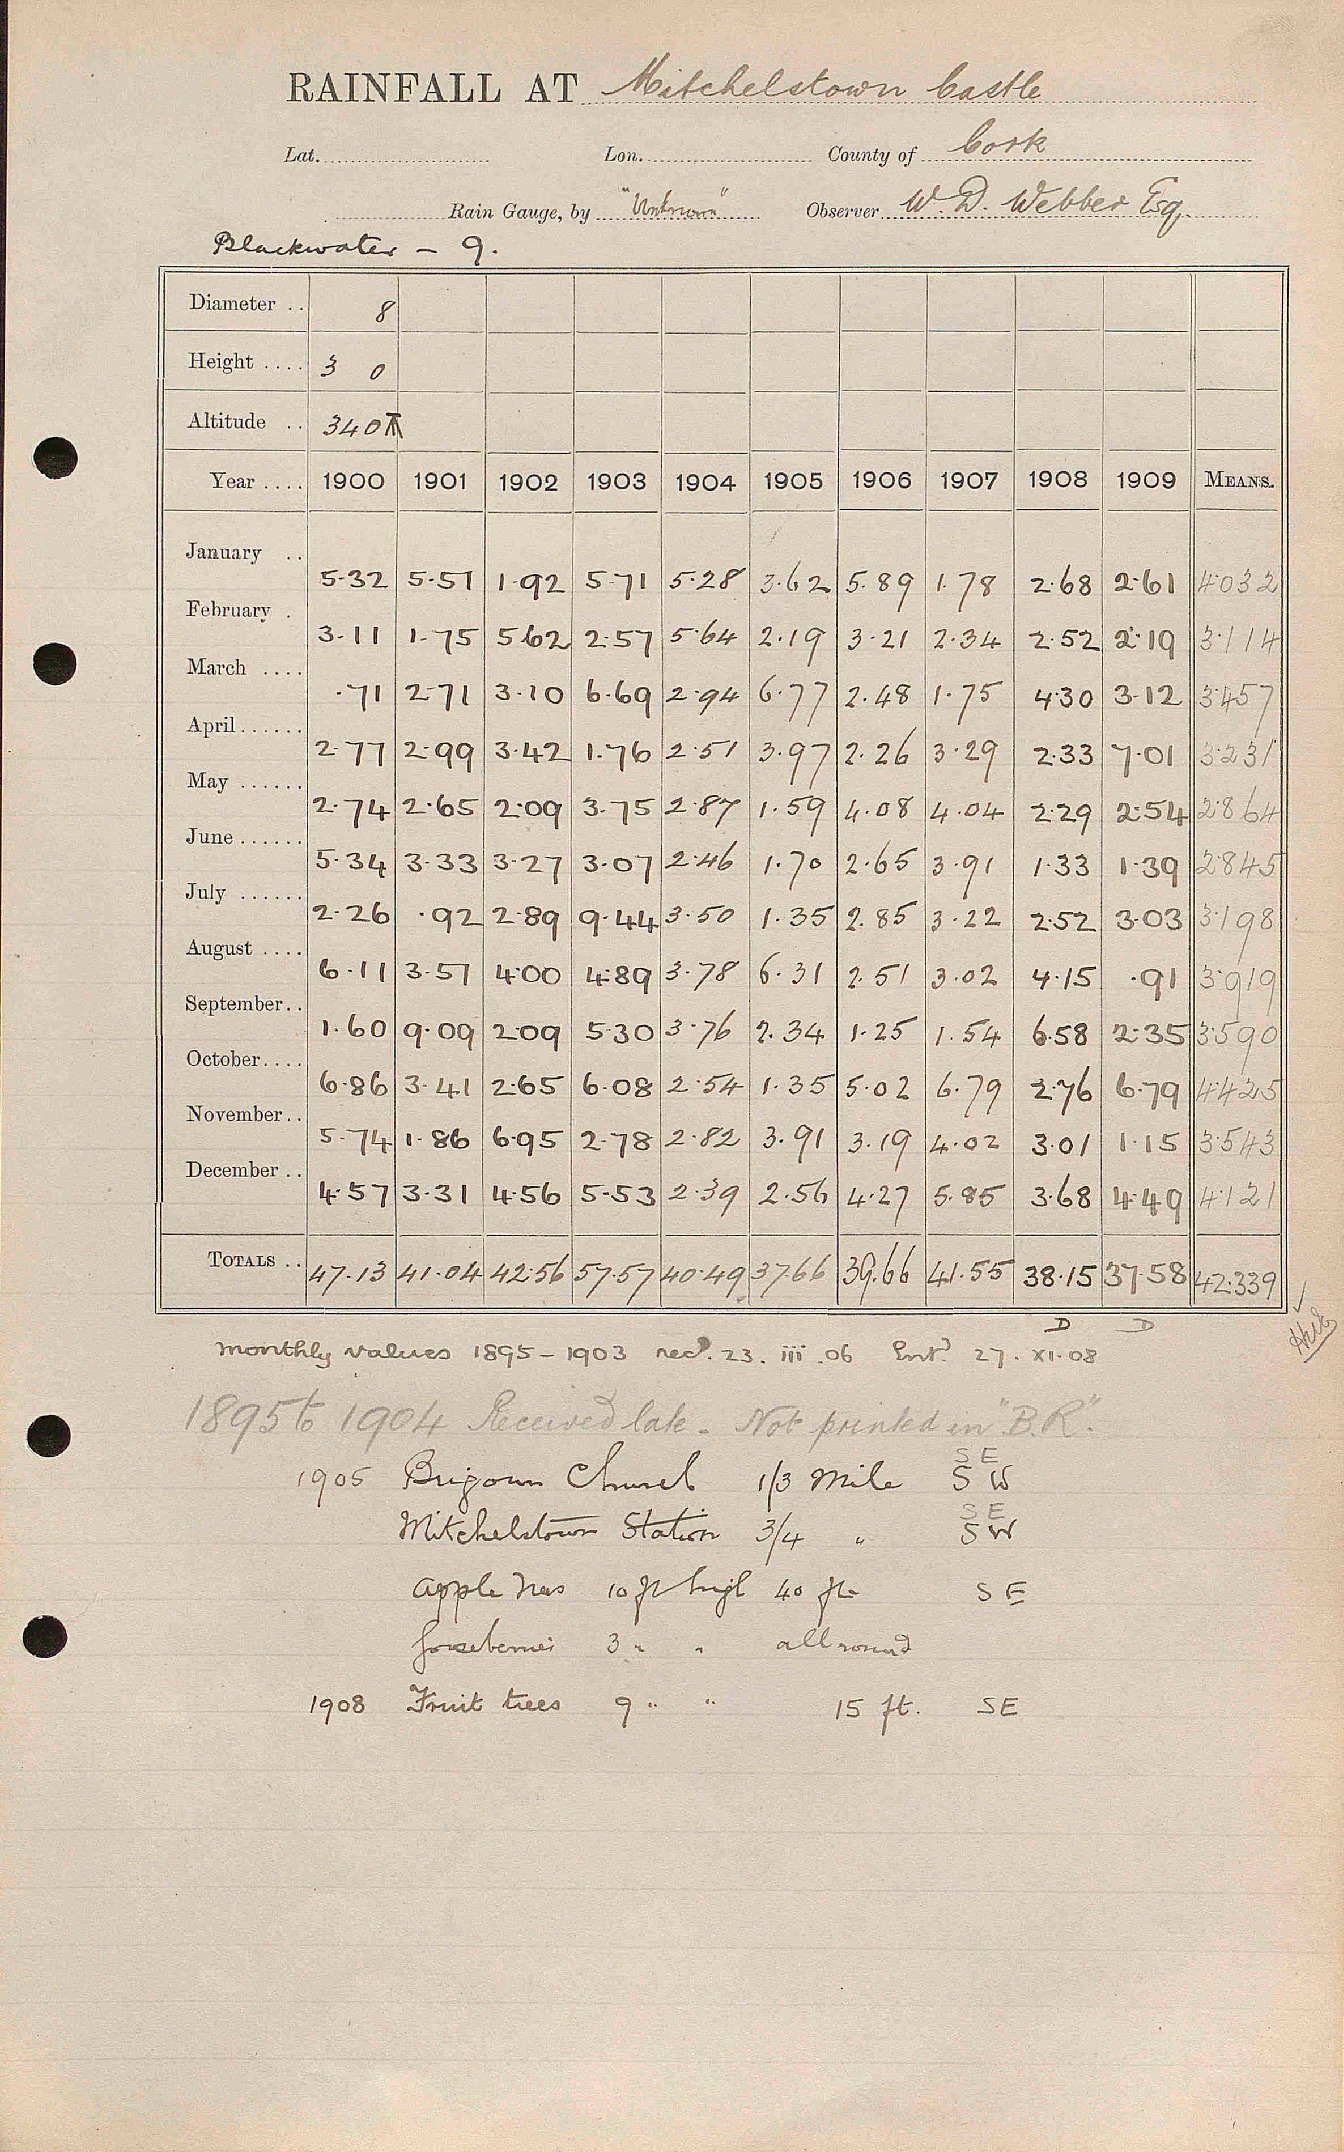 RAINFALL AT Mitchelstown Castle
Lat. Lon. County of Cork
Rain Gauge, by "Unknown" Observer W. D. Webber Esq.
Blackwater - 9.
Diameter .. 8
Height .... 3 0
Altitude .. 340
Year .... 1900 1901 1902 1903 1904 1905 1906 1907 1908 1909 MEANS.
January .. 5.32 5.51 1.92 5.71 5.28 3.62 5.89 1.78 2.68 2.61 4.032
February . 3.11 1.75 5.62 2.57 5.64 2.19 3.21 2.34 2.52 2.19 3.114
March .... .71 2.71 3.10 6.69 2.94 6.77 2.48 1.75 4.30 3.12 3.457
April ...... 2.77 2.99 3.42 1.76 2.51 3.97 2.26 3.29 2.33 7.01 3.231
May ...... 2.74 2.65 2.09 3.75 2.87 1.59 4.08 4.04 2.29 2.54 2.864
June ...... 5.34 3.33 3.27 3.07 2.46 1.70 2.65 3.91 1.33 1.39 2.845
July ...... 2.26 .92 2.89 9.44 3.50 1.35 2.85 3.22 2.52 3.03 3.198
August .... 6.11 3.51 4.00 4.89 3.78 6.31 2.51 3.02 4.15 .91 3.919
September .. 1.60 9.09 2.09 5.30 3.76 2.34 1.25 1.54 6.58 2.35 3.590
October .... 6.86 3.41 2.65 6.08 2.54 1.35 5.02 6.79 2.76 6.79 4.425
November .. 5.74 1.86 6.95 2.78 2.82 3.91 3.19 4.02 3.01 1.15 3.543
December .. 4.57 3.31 4.56 5.53 2.39 2.56 4.27 5.85 3.68 4.49 4.121
TOTALS .. 47.13 41.04 42.56 57.57 40.49 37.66 39.66 41.55 38.15 37.58 42.339
D D
Monthly values 1895-1903 recd. 23. iii .06 Entd. 27. XI.08
1895 to 1904 Received late. Not printed in "B.R."
S E
1905 Brigown Church 1/3 Mile S W
S E
Mitchelstown Station 3/4 " S W
Apple trees 10 ft high 40 ft S E
Gooseberries 3 " " all round
1908 Fruit trees 9 " " 15 ft. SE